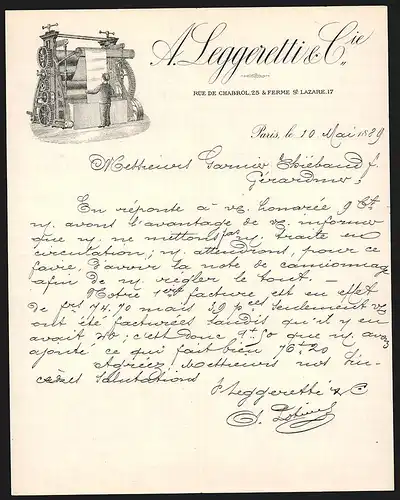 A. Leggeretti & Cie
RUE DE CHABROL, 25 & FERME St LAZARE, 17
Paris, le 10 Mai 1889
Messieurs Garnier Thiébaud f.
Gérardmer.
En réponse à vc. honorée 9 Ct.
n/. avons l'avantage de vc. informer
que n/. ne mettons pas n/. traite en
circulation; n/. attendrons, pour ce
faire, d'avoir la note de camionnag
afin de n/. régler le tout. —
Notre 1ere facture est en effet
de frs 74.70 mais 39 pces seulement vc
ont été facturées tandis qu'il y en
avait 40; c'est donc 1f.50 que n/. avs
ajouté ce qui fait bien 76f.20
Agréez Messieurs nos sin-
cères salutations
Leggeretti & C